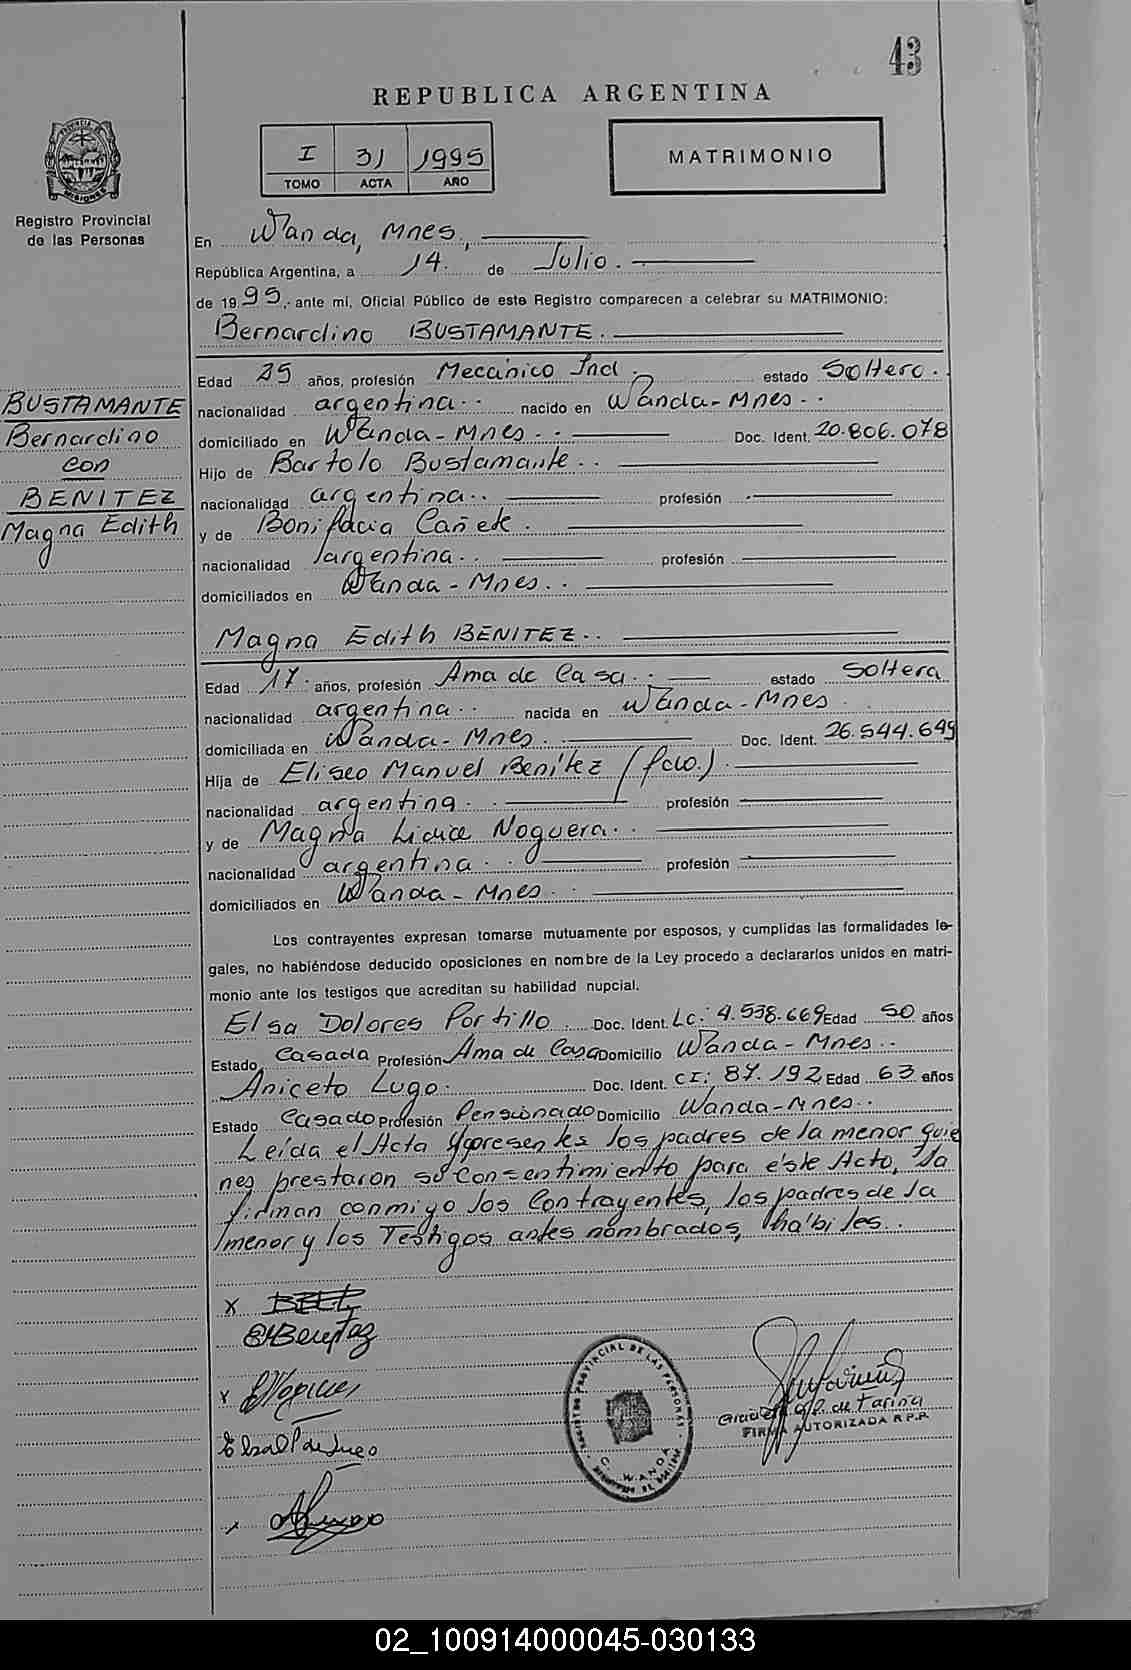 43
REPUBLICA ARGENTINA
I 31 1995
TOMO ACTA AÑO
MATRIMONIO
PROVINCIA DE MISIONES
Registro Provincial
de las Personas
En Wanda, Mnes.,
República Argentina, a 14. de Julio.
de 1995, ante mi, Oficial Público de este Registro comparecen a celebrar su MATRIMONIO:
Bernardino BUSTAMANTE.
Edad 25 años, profesión Mecánico Ind. estado Soltero.
nacionalidad argentina.. nacido en Wanda-Mnes..
domiciliado en Wanda-Mnes.. Doc. Ident. 20.806.078
Hijo de Bartolo Bustamante..
nacionalidad argentina.. profesión
y de Bonifacia Cañete.
nacionalidad argentina.. profesión
domiciliados en Wanda-Mnes..
BUSTAMANTE
Bernardino
con
BENITEZ
Magna Edith
Magna Edith BENITEZ..
Edad 17. años, profesión Ama de Casa.. estado Soltera
nacionalidad argentina.. nacida en Wanda-Mnes
domiciliada en Wanda-Mnes. Doc. Ident. 26.544.649
Hija de Eliseo Manuel Benítez (fcio.).
nacionalidad argentina.. profesión
y de Magna Noguera..
nacionalidad argentina.. profesión
domiciliados en Wanda-Mnes..
Los contrayentes expresan tomarse mutuamente por esposos, y cumplidas las formalidades le-
gales, no habiéndose deducido oposiciones en nombre de la Ley procedo a declararlos unidos en matri-
monio ante los testigos que acreditan su habilidad nupcial.
Elsa Dolores Portillo. Doc. Ident. Lc: 4.538.669 Edad 50 años
Estado Casada Profesión Ama de Casa Domicilio Wanda-Mnes..
Aniceto Lugo. Doc. Ident. CI: 87.192 Edad 63 años
Estado Casado Profesión Pensionado Domicilio Wanda-Mnes..
Leída el Acta y presentes los padres de la menor quie
nes prestaron su Consentimiento para éste Acto, la
firman conmigo los Contrayentes, los padres de la
menor y los Testigos antes nombrados, hábiles..
X
Benitez
X
X
REGISTRO PROVINCIAL DE LAS PERSONAS
WANDA
de Fariña
FIRMA AUTORIZADA R.P.P.
02_100914000045-030133